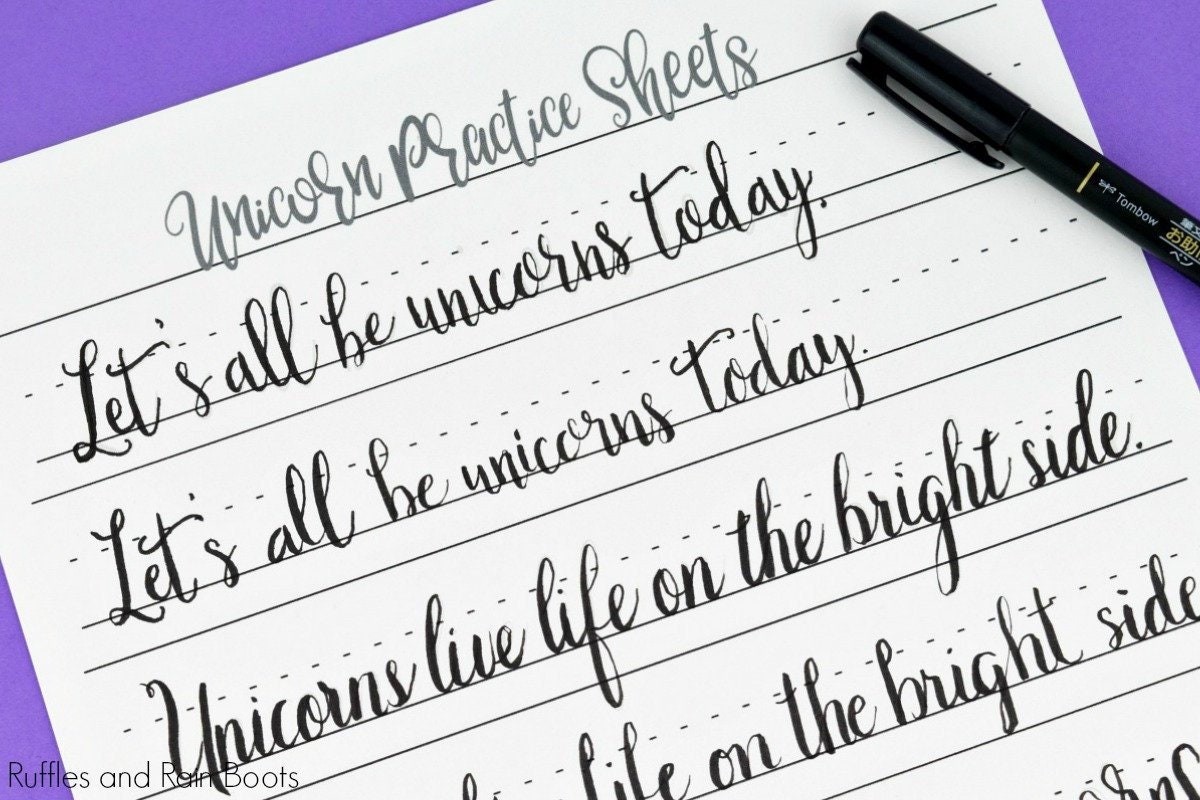 Unicorn Practice Sheets
Let's all be unicorns today.
Let's all be unicorns today.
Unicorns live life on the bright side.
life on the bright side
Tombow
お助け
ペン
Ruffles and Rain Boots